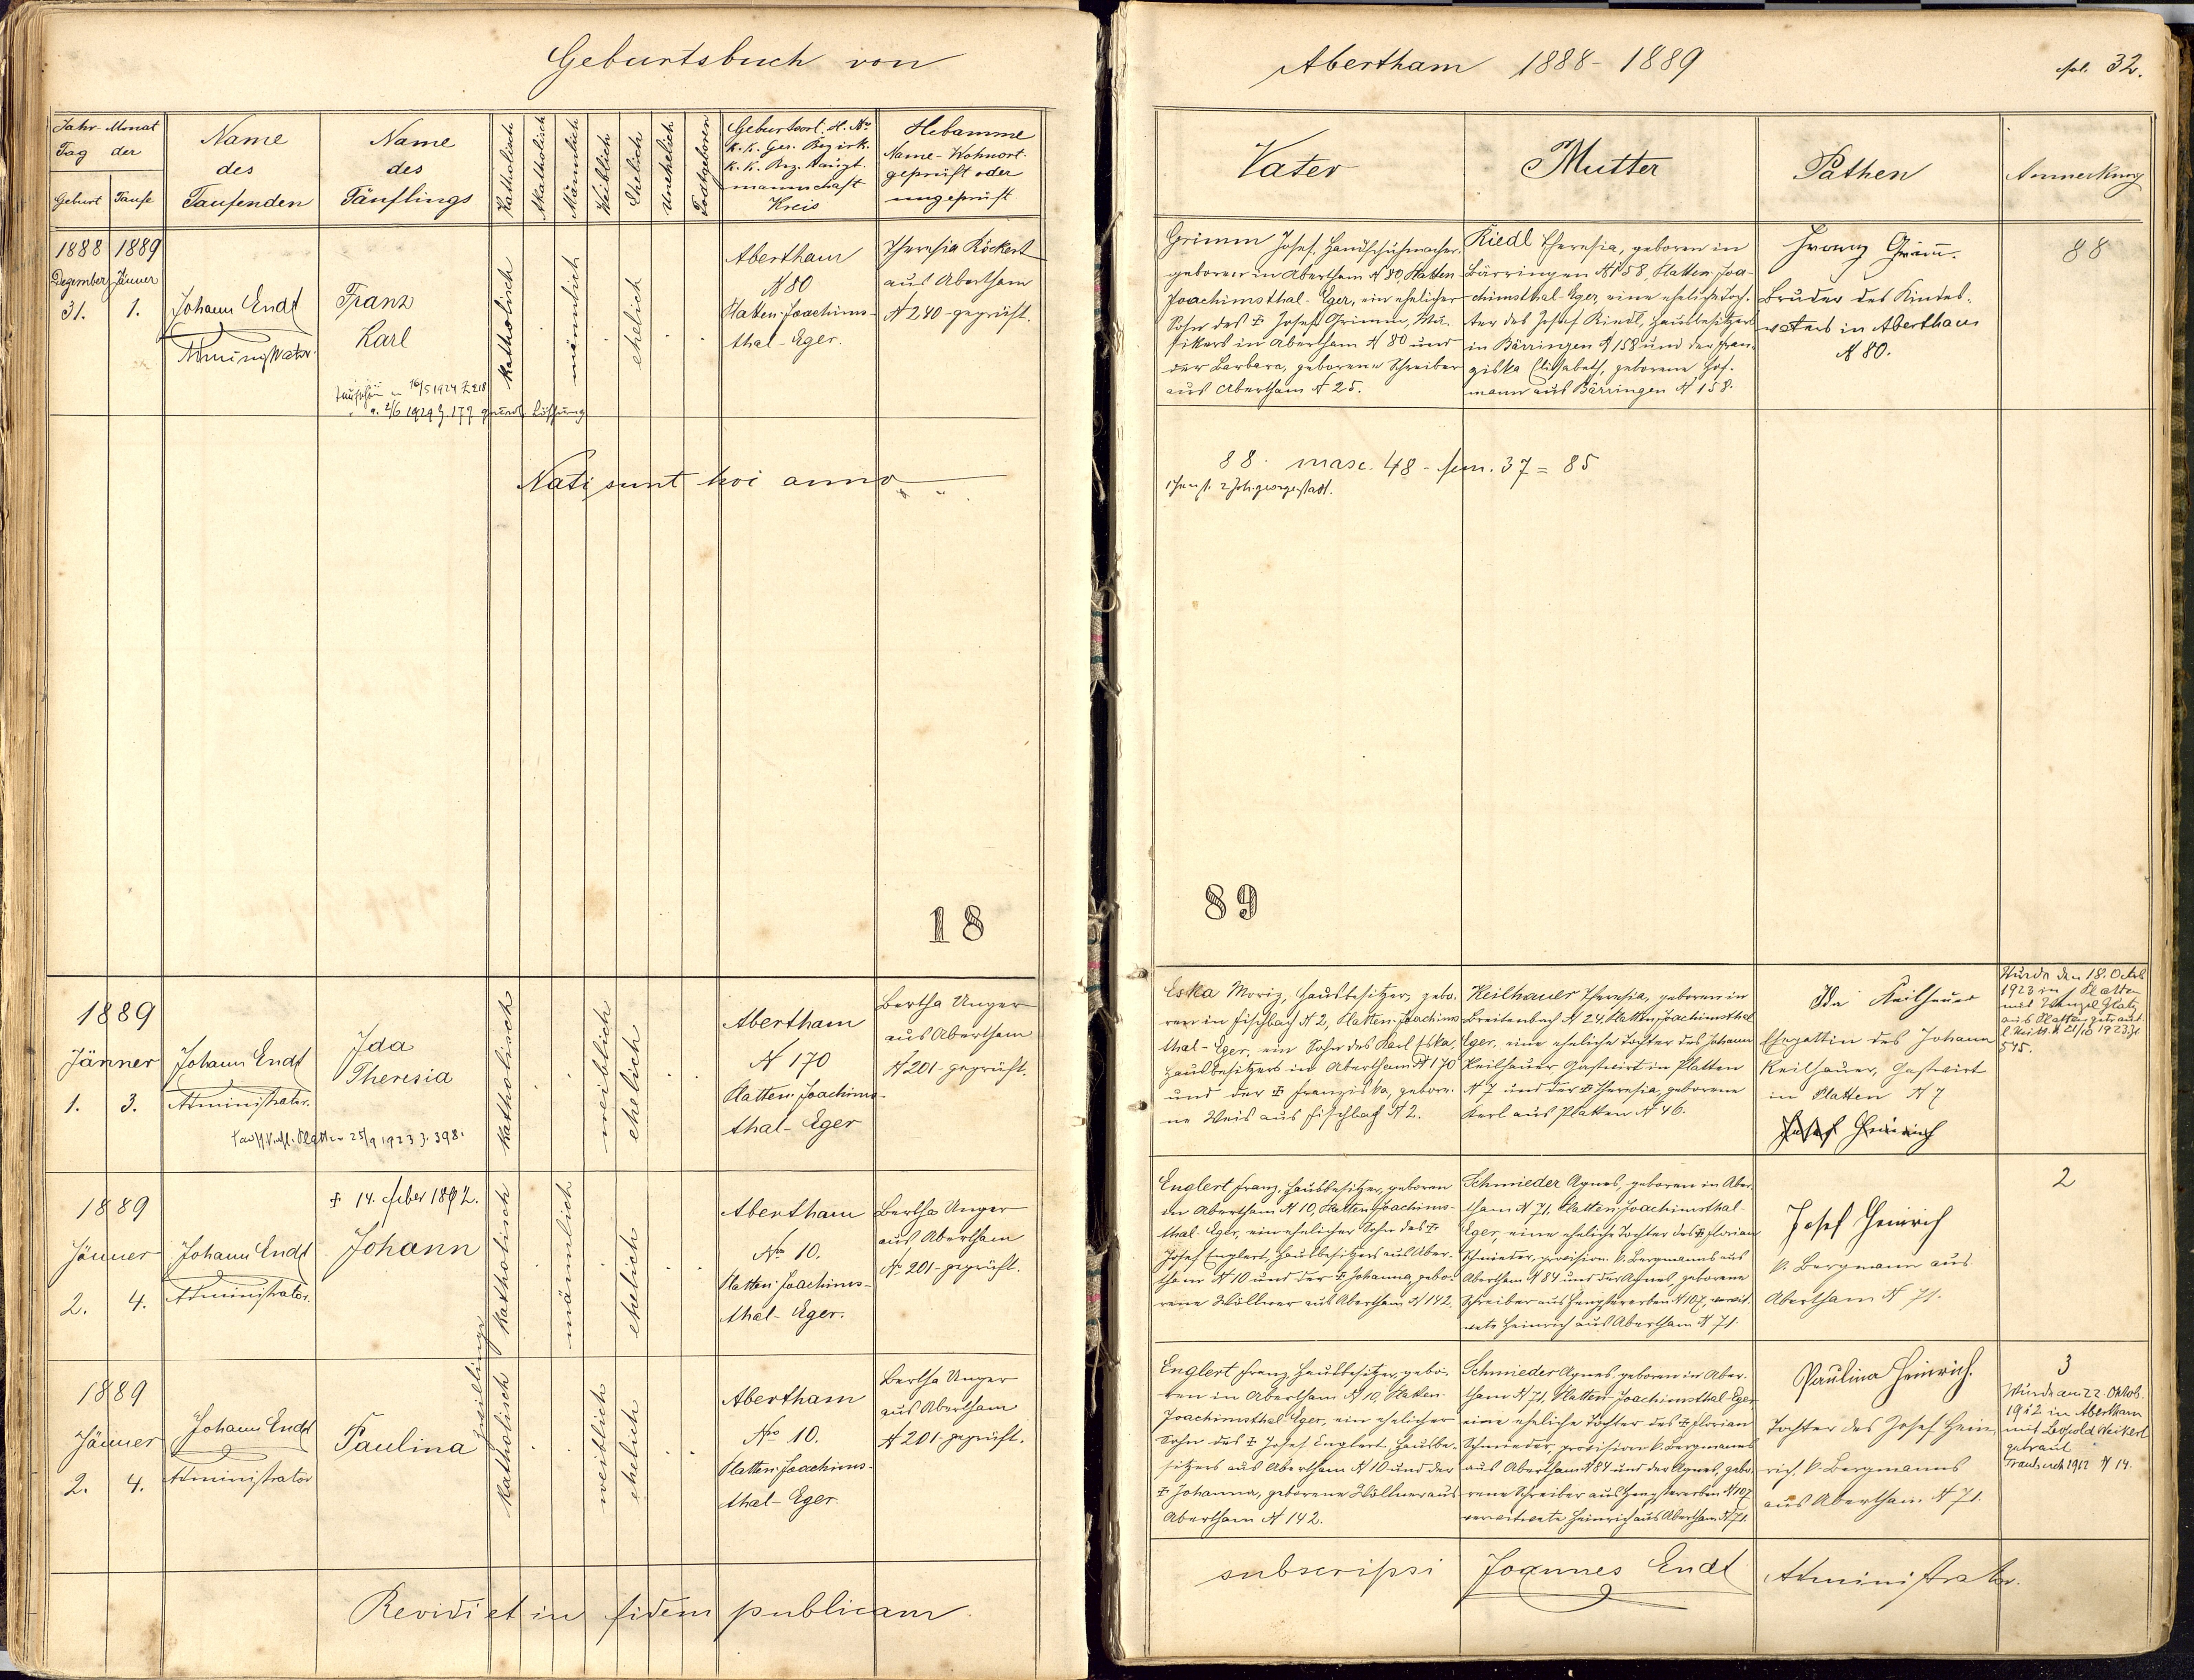 Geburtsbuch von
Abertham 1888-1889
fol. 32.
Jahr Monat
Tag der
Geburt Taufe
Name
des
Taufenden
Name
des
Täuflings
Katholisch
Akatholisch
Männlich
Weiblich
Ehelich
Unehelich
Todtgeboren
Geburtsort. H. No
k. k. Ger. Bezirk.
k. k. Bez. Haupt
mannschaft
Kreis
Hebamme
Name - Wohnort
geprüft oder
ungeprüft
Vater
Mutter
Pathen
Anmerkung
1888 1889
Dezember Jänner
31. 1.
Johann Endt
Administrator.
Franz
Karl
katholisch
männlich
ehelich
Abertham
N 80
Platten-Joachims-
thal-Eger.
Theresia Röckert
aus Abertham
N 240-geprüft.
Grimm Josef, Handschuhmacher,
geboren in Abertham N 80, Platten-
Joachimsthal-Eger, ein ehelicher
Sohn des ☩ Josef Grimm, Mu-
sikers in Abertham N 80 und
der Barbara, geborene Schreiber
aus Abertham N 25.
Riedl Theresia, geboren in
Bärringen N 158, Platten-Joa-
chimsthal-Eger, eine eheliche Toch-
ter des Josef Riedl, Hausbesitzers
in Bärringen N 158 und der Fran-
ziska Elisabeth, geborene Hof-
mann aus Bärringen N 158.
Franz Grim̄.
Bruder des Kindes-
vaters in Abertham
N 80.
88
Taufschein 16/5 1924 Z 218
2/6 1929 Z. 177
Nati sunt hoi anno
88. masc. 48 - fem. 37 = 85
18
89
1889
Jänner
1. 3.
Johann Endt
Administrator.
Ida
Theresia
Platten 25/9 1923 Z. 398.
katholisch
weiblich
ehelich
Abertham
N 170
Platten-Joachims-
thal-Eger
Bertha Unger
aus Abertham
N 201-geprüft.
Eska Moriz, Hausbesitzer, gebo-
ren in Fischbach N 2, Platten-Joachims-
thal-Eger, ein Sohn des Karl Eska,
Hausbesitzers in Abertham N 170
und der ☩ Franziska, gebore-
ne Weis aus Fischbach N 2.
Keilhauer Theresia, geboren in
Breitenbach N 24, Platten-Joachimsthal
Eger, eine eheliche Tochter des Johann
Keilhauer Gastwirt in Platten
N 7 und der ☩ Theresia, geborene
Kerl aus Platten N 46.
Ida Keilhauer
Ehegattin des Johann
Keilhauer, Gastwirt
in Platten N 7
Josef Heinrich
Wurde den 18. Octob
1923 in Platten
mit Wenzel Glatz
aus Platten getraut
21/10 1923 Z.
545.
1889
Jänner
2. 4.
Johann Endt
Administrator.
☩ 14. feber 1892.
Johann
katholisch
männlich
ehelich
Abertham
No 10.
Platten-Joachims-
thal-Eger.
Bertha Unger
aus Abertham
No 201-geprüft.
Englert Franz, Hausbesitzer, geboren
in Abertham N 10, Platten-Joachims-
thal-Eger, ein ehelicher Sohn des ☩
Josef Englert, Hausbesitzers aus Aber-
tham N 10 und der ☩ Johanna, gebo-
rene Wöllner aus Abertham N 142.
Schmieder Agnes, geboren in Aber-
tham N 71, Platten-Joachimsthal-
Eger, eine eheliche Tochter des ☩ Florian
Schmieder, provision. k. Bergmanns aus
Abertham N 84 und der Agnes, geborene
Schreiber aus Hengstererben N 107, verwit-
wete Heinrich aus Abertham N 71.
Josef Heinrich
k. Bergmann aus
Abertham N 71.
2
Zwillinge
1889
Jänner
2. 4.
Johann Endt
Administrator
Paulina
katholisch
weiblich
ehelich
Abertham
Nro 10.
Platten-Joachims-
thal-Eger.
Bertha Unger
aus Abertham
N 201-geprüft.
Englert Franz Hausbesitzer, gebo-
ren in Abertham N 10, Platten-
Joachimsthal-Eger, ein ehelicher
Sohn des ☩ Josef Englert Hausbe-
sitzers aus Abertham N 10 und der
☩ Johanna, geborene Wöllner aus
Abertham N 142.
Schmieder Agnes, geboren in Aber-
tham N 71, Platten-Joachimsthal-Eger
eine eheliche Tochter des ☩ Florian
Schmieder, provision k. Bergmanns
aus Abertham N 84 und der Agnes, gebo-
rene Schreiber aus Hengstererben N 107
verwitwete Heinrich aus Abertham N 71.
Paulina Heinrich.
Tochter des Josef Hein-
rich, k. Bergmanns
aus Abertham N 71.
3
Wurde am 22. Oktob.
1912 in Abertham
mit Leopold Weikert
getraut
Traubuch 1912 N 14.
Revidi et in fidem publicam
subscripsi Joannes Endt Administrator.